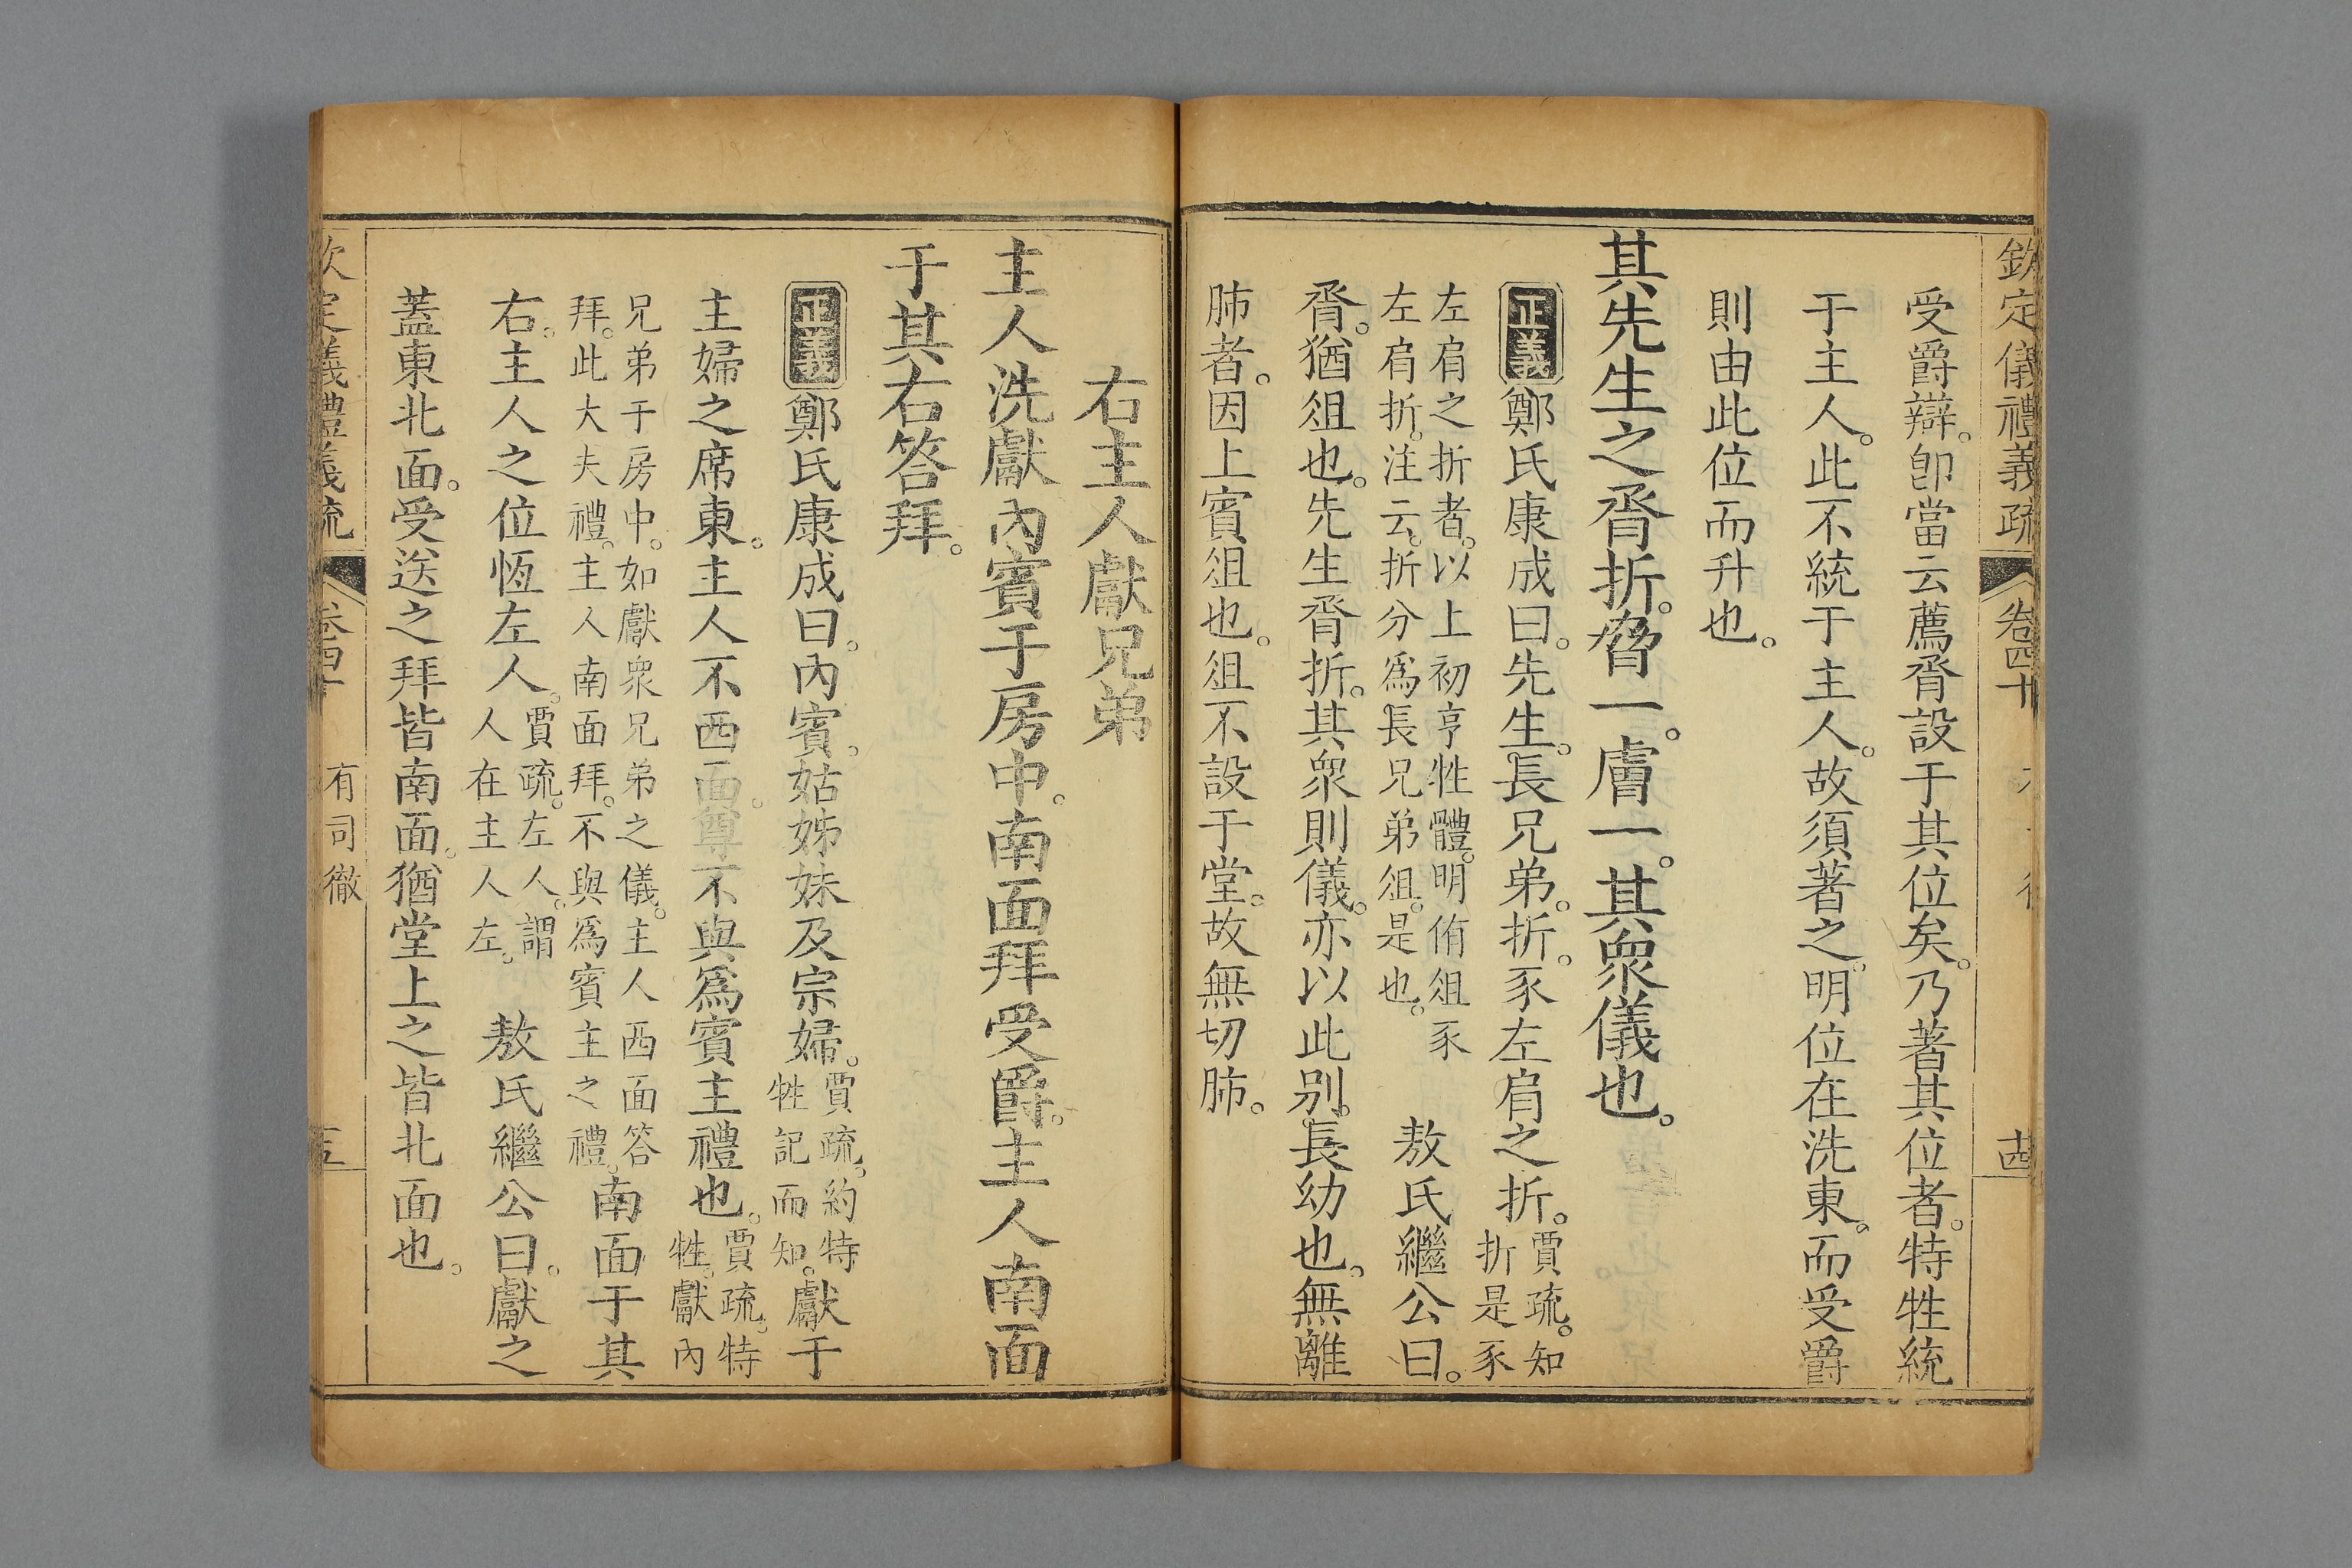 欽定儀禮義疏 卷四十 十四
受爵辯。卽當云薦脀設于其位矣。乃著其位者。特牲統
于主人。此不統于主人。故須著之。明位在洗東。而受爵
則由此位而升也。
其先生之脀折。脅一。膚一。其衆儀也。
正義鄭氏康成曰。先生。長兄弟。折。豕左肩之折。賈疏。知
折是豕
左肩之折者。以上初亨牲體。明侑俎豕
左肩折。注云。折分爲長兄弟俎。是也。
敖氏繼公曰。
脀。猶俎也。先生脀折。其衆則儀。亦以此別長幼也。無離
肺者。因上賓俎也。俎不設于堂。故無切肺。
右主人獻兄弟
主人洗獻內賓于房中。南面拜受爵。主人南面
于其右答拜。
正義鄭氏康成曰。內賓。姑姊妹及宗婦。賈疏。約特
牲記而知。
獻于
主婦之席東。主人不西面。尊不與爲賓主禮也。賈疏。特
牲。獻內
兄弟于房中。如獻衆兄弟之儀。主人西面答
拜。此大夫禮。主人南面拜。不與爲賓主之禮。
南面于其
右。主人之位恆左人。賈疏。左人。謂
人在主人左。
敖氏繼公曰。獻之
蓋東北面。受送之拜皆南面。猶堂上之皆北面也。
欽定儀禮義疏 卷四十 有司徹